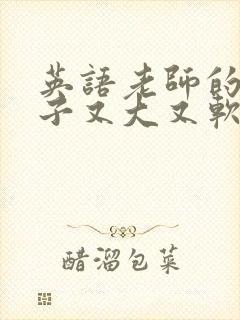 英語老師的
子又大又軟
醋溜包菜